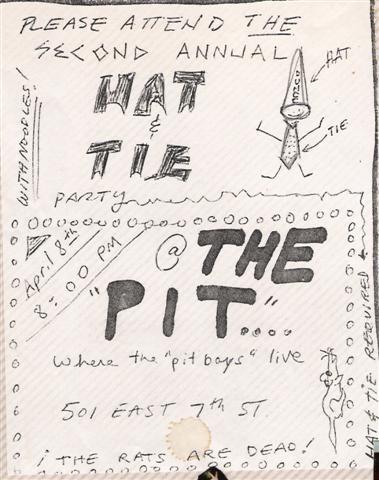 PLEASE ATTEND THE
SECOND ANNUAL
HAT
&
TIE
PARTY
WITH NOODLES!
DUNCE
HAT
TIE
April 8th
8:00 PM
@ THE
"PIT"....
where the "pit boys" live
501 EAST 7th ST.
¡ THE RATS ARE DEAD!
HAT & TIE REQUIRED